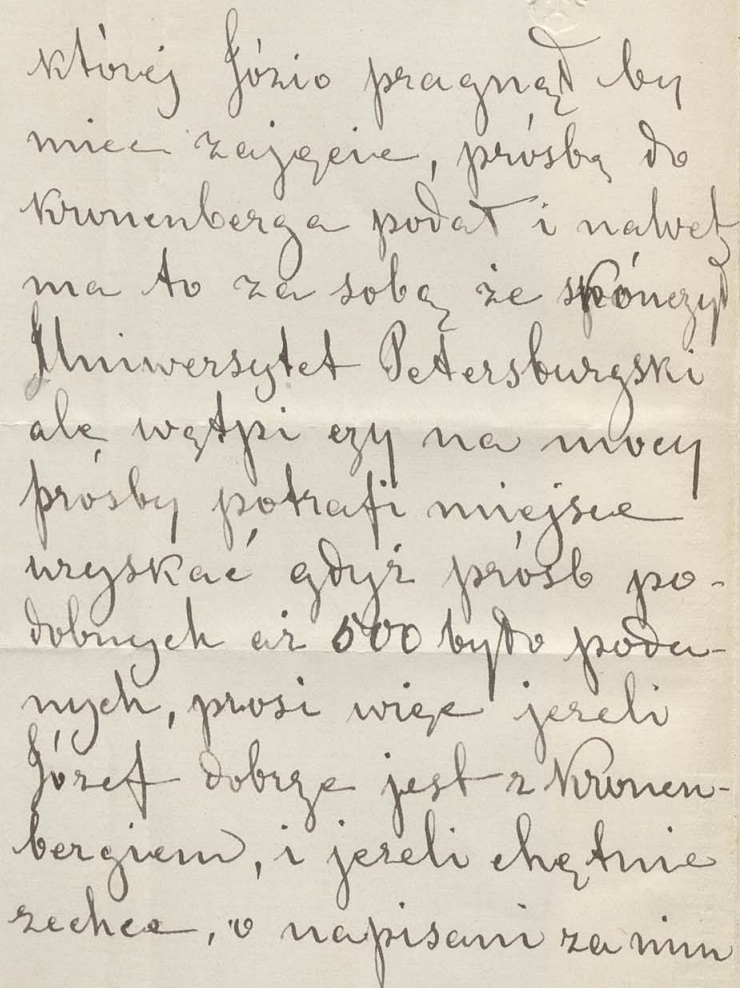 której Józio pragnął by
mieć zajęcie, prósbę do
Kronenberga podał i nawet
ma to za sobą że skónczył
Uniwersytet Petersburgski
ale wątpi czy na mocy
prósby potrafi miejsce
uzyskać gdyż prósb po-
dobnych aż 500 było poda-
nych, prosi więc jeżeli
Józef dobrze jest z Kronen-
bergiem, i jeżeli chętnie
zechce, o napisani za nim